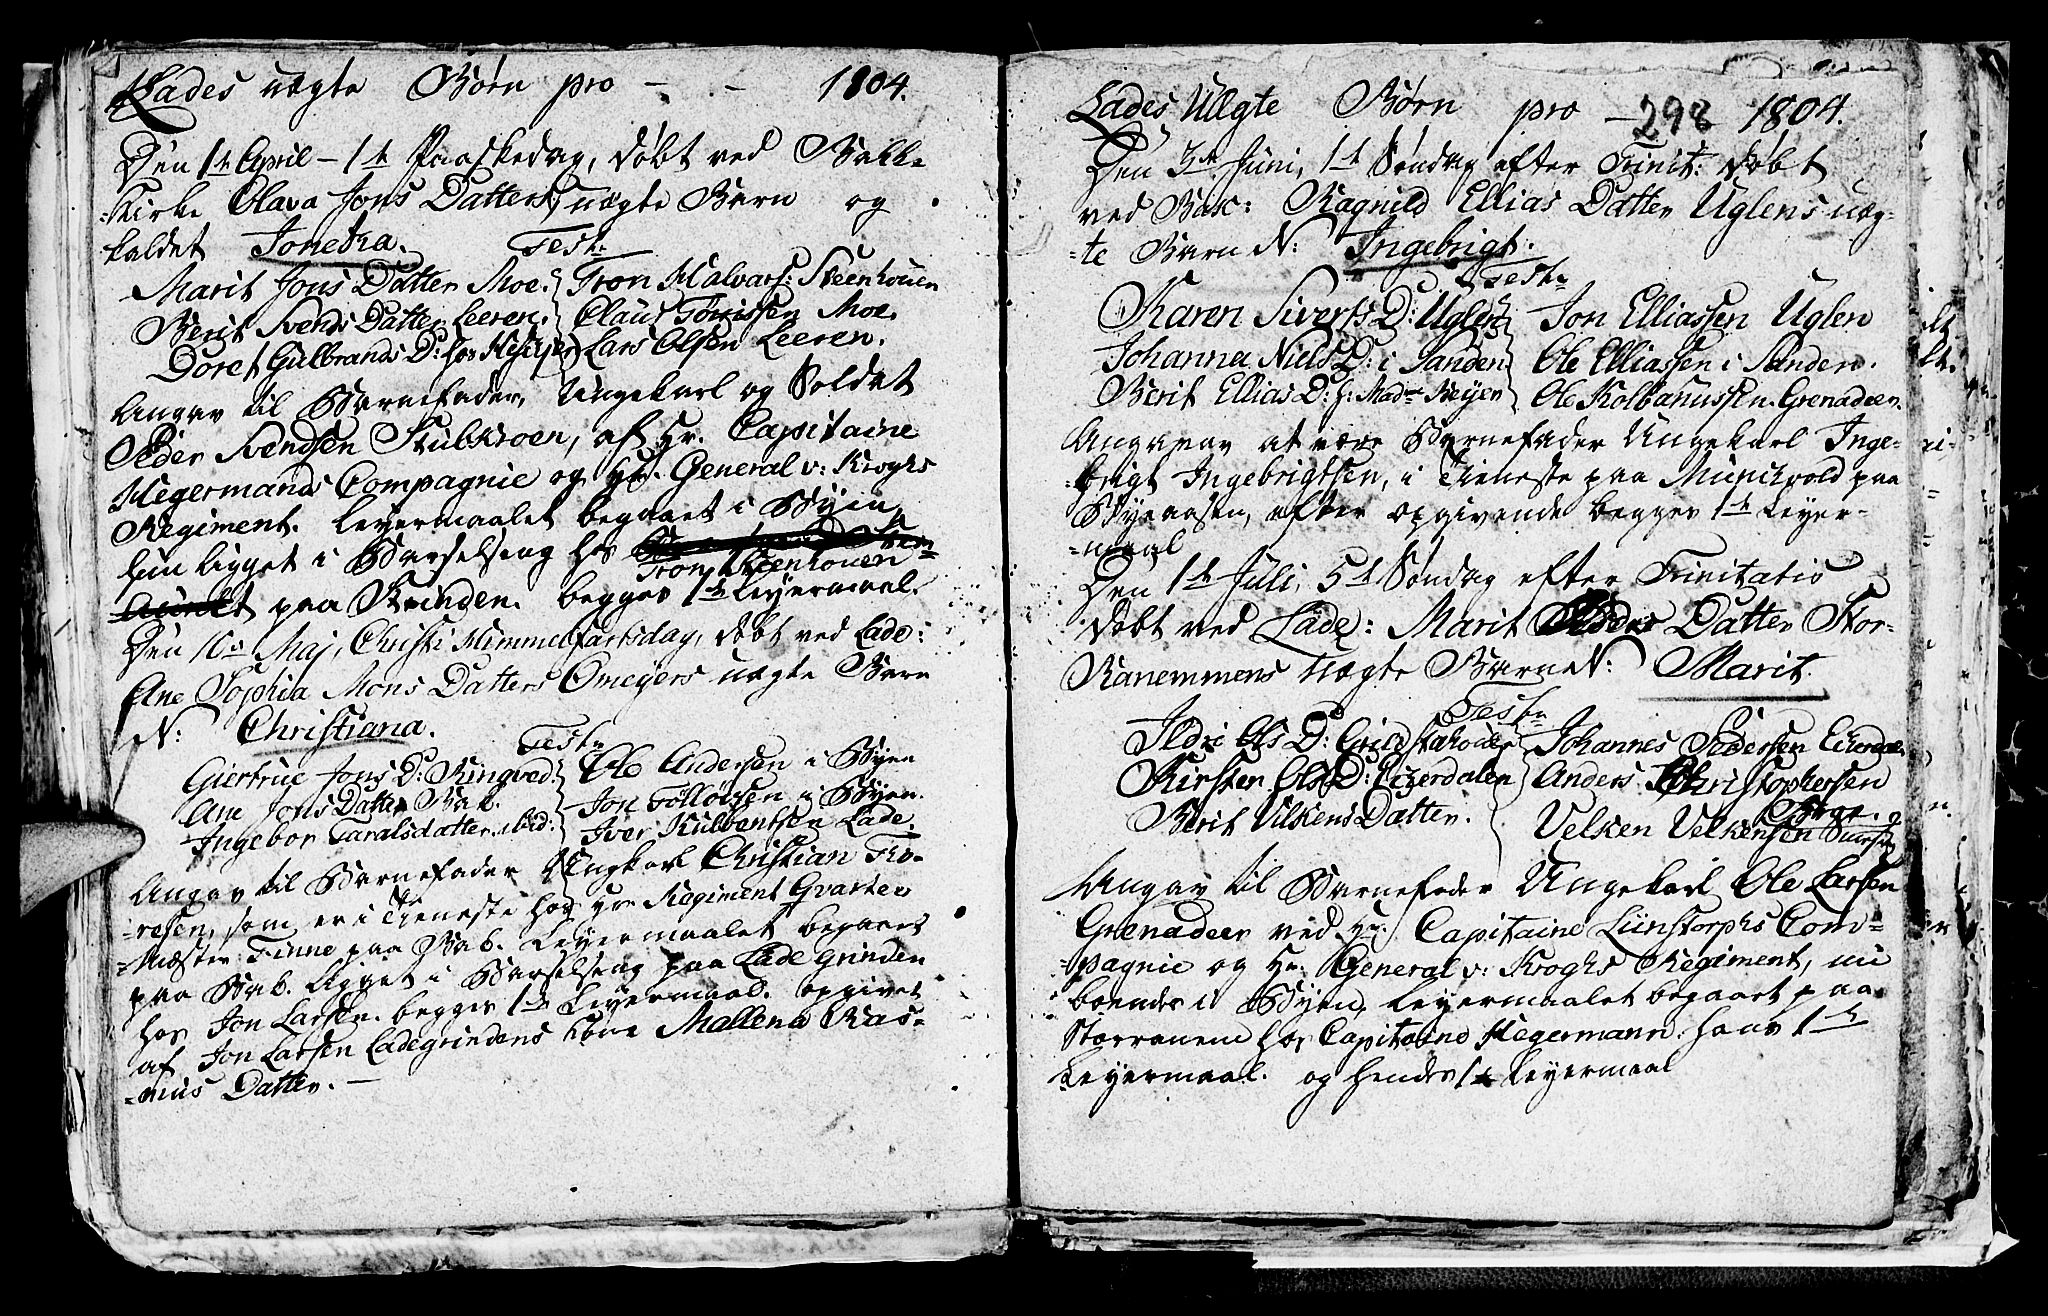 Lades uægte Børn pro - - 1804.
Den 1te April - 1te Paaskedag, døbt ved Bakke
-Kirke Olava Jons Datters uægte Barn og
kaldet Jonetta.
Test:
Marit Jons Datter Moe. Tron Halvars: Steenhouen
Berit Svends Datter Leeren. Claus Tønissen Moe.
Doret Gulbrands D: hos Lars Olsen Leeren.
Angav til Barnefader, Ungekarl og Soldat
Peder Svendsen Stubskoen, af Hr. Capitaine
Hegermands Compagnie og Hr. General v: Kroghs
Regiment. Leyermaalet begaaet i Byen,
hun ligget i Barselseng hos
Tron Steenhouen
paa Strinden. begges 1te Leyermaal.
Den 10de Maj, Christi Himmelfartsdag, døbt ved Lade:
Ane Sophia Mons Datters Omeyers uægte Barn
N: Christiana.
Test:
Giertrue Jons D: Ringved Ole Andersen i Byen
Ane Jons Datter Bak. Jon Tølløvsen i Byen.
Ingebor Taralsdatter ibid: Iver Kulbentsen Lade
Angav til Barnefader Ungkarl Christian Tho-
-resen, som er i Tieneste hos Hr. Regiment Qvarteer
-Mæster Finne paa Bak. Leyermaalet begaaet
paa Bak. ligget i Barselseng paa Lade grinden
hos Jon Larsen. begges 1te Leyermaal. opgivet
af Jon Larsen Ladegrindens Kone Mallena Ras-
-mus Datter. -
Lades Uægte Børn pro - 298 1804.
Den 3de Juni, 1te Søndag efter Trinit: døbt
ved Bak: Ragnild Ellias Datter Uglens uæg-
-te Barn N: Ingebrigt.
Test:
Karen Siverts D: Uglen Jon Elliassen Uglen
Johanna Niels D: i Sanden Ole Elliassen i Sanden.
Berit Ellias D: h: Madme Meyer Ole Kolbanussen. Grenadeer.
Angavav at være Barnefader Ungekarl Inge-
-brigt Ingebrigtsen, i Tieneste paa Munchvold paa
Byeaasen, efter opgivende begges 1te Leyer-
-maal
Den 1te Juli, 5te Søndag efter Trinitatis
døbt ved Lade: Marit Peders Datter Stor-
Ranemmens uægte Barn N: Marit.
Test:
Ildri Ols D: Johannes Pedersen Ekerdalen
Kirsten Ols D: Eizerdalen Anders Christophersen
Berit Vilkens Datter. Velken Velkensen
Angav til Barnefader Ungekarl Ole Larsen
Grenadeer ved Hr: Capitaine Lünstorphs Com-
-pagnie og Hr. General v: Kroghs Regiment, nu
boende i Byen, Leyermaalet begaaet paa
Storranem hos Capitaine Hegermann. hans 1te
Leyermaal. og hendes 1te Leyermaal